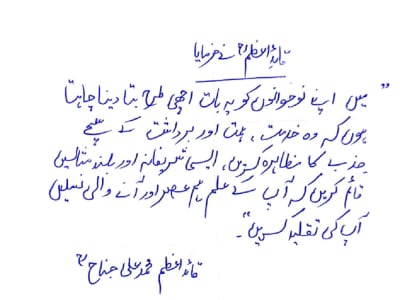 قائدِ اعظمؒ نے فرمایا
"میں اپنے نوجوانوں کو یہ بات اچھی طرح بتا دینا چاہتا
ہوں کہ وہ خدمت، ہمت اور برداشت کے سچے
جذبے کا مظاہرہ کریں، ایسی شریفانہ اور بلند مثالیں
قائم کریں کہ آپ کے ہم عصر اور آنے والی نسلیں
آپ کی تقلید کریں"۔
قائد اعظم محمد علی جناحؒ